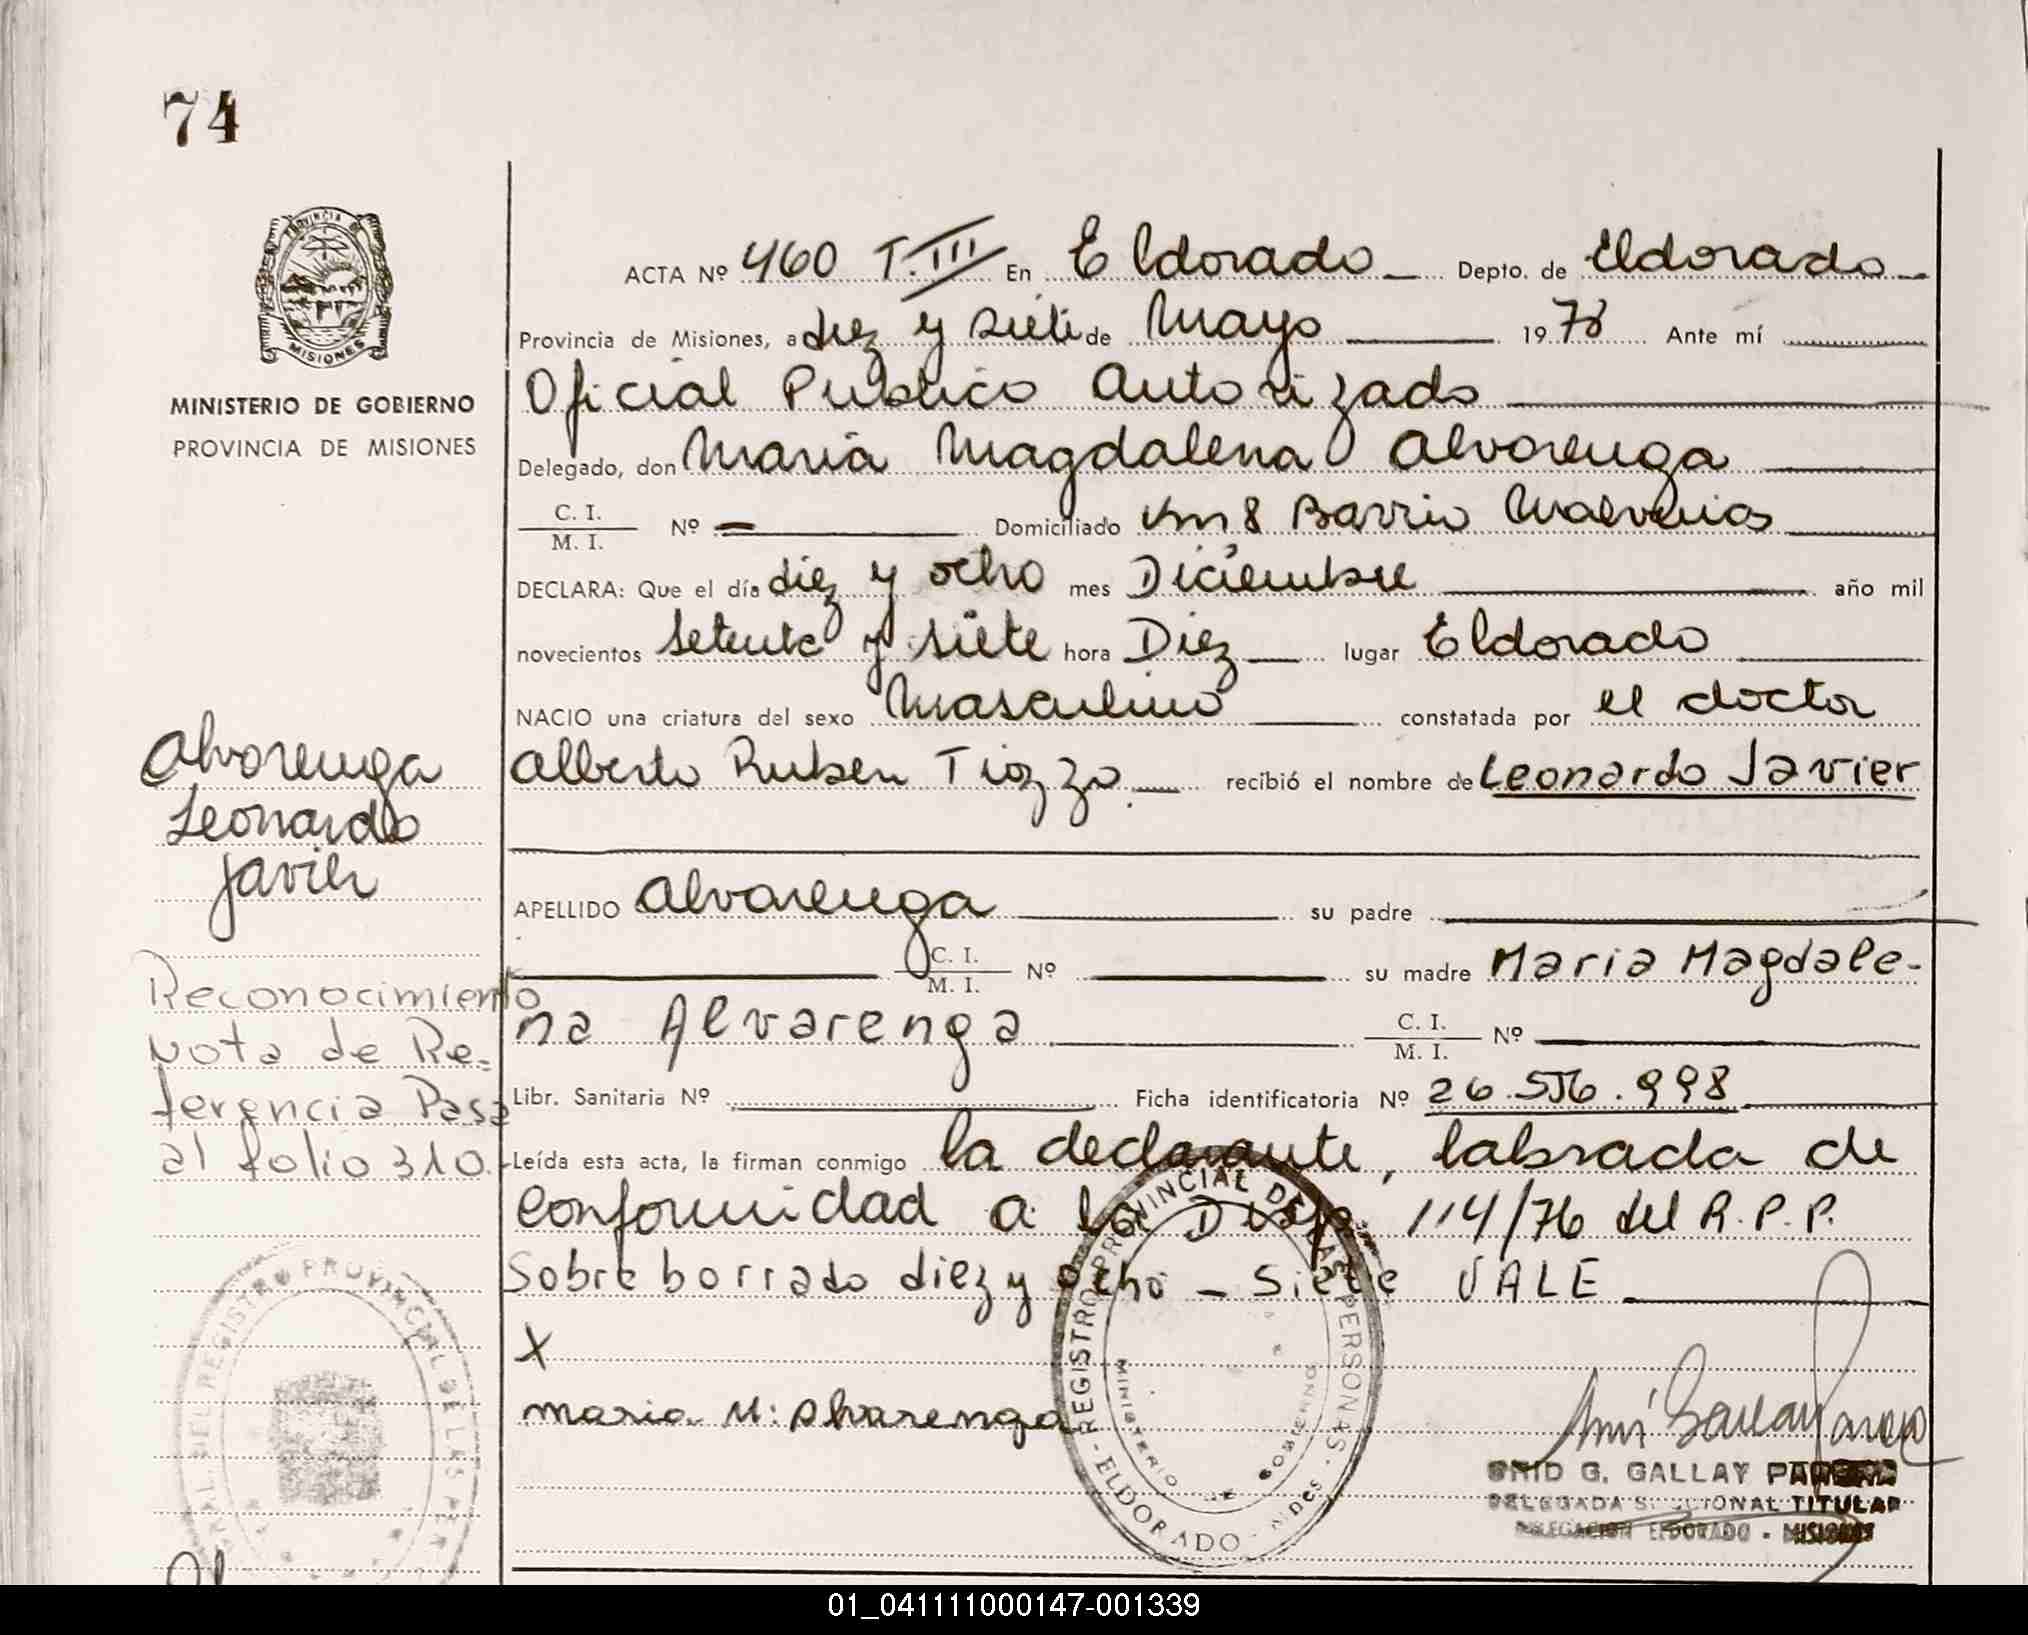 74
PROVINCIA DE
MISIONES
MINISTERIO DE GOBIERNO
PROVINCIA DE MISIONES
ACTA Nº 460 T.III En Eldorado Depto. de Eldorado
Provincia de Misiones, a diez y siete de Mayo 1978 Ante mí
Oficial Publico Autorizado
Delegado, don Maria Magdalena Alvarenga
C. I.
M. I. Nº — Domiciliado Km 8 Barrio Malvinas
DECLARA: Que el día diez y ocho mes Diciembre año mil
novecientos setenta y siete hora Diez lugar Eldorado
NACIO una criatura del sexo Masculino constatada por el doctor
Alberto Ruben Tiozzo recibió el nombre de Leonardo Javier
APELLIDO Alvarenga su padre
C. I.
M. I. Nº su madre Maria Magdale-
na Alvarenga C. I.
M. I. Nº
Libr. Sanitaria Nº Ficha identificatoria Nº 26.556.998
Leída esta acta, la firman conmigo la declarante, labrada de
conformidad a la Disp. 114/76 del R.P.P.
Sobre borrado diez y ocho - Siete VALE
X
maria M: Alvarenga
Alvarenga
Leonardo
Javier
Reconocimiento
Nota de Re-
ferencia Pasa
al folio 310.
REGISTRO PROVINCIAL DE LAS PERSONAS
MINISTERIO GOBIERNO
ELDORADO
DEL REGISTRO PROVINCIAL DE LAS PER
G. GALLAY
DELEGADA SECCIONAL TITULAR
DELEGACION ELDORADO - MISIONES
01_041111000147-001339